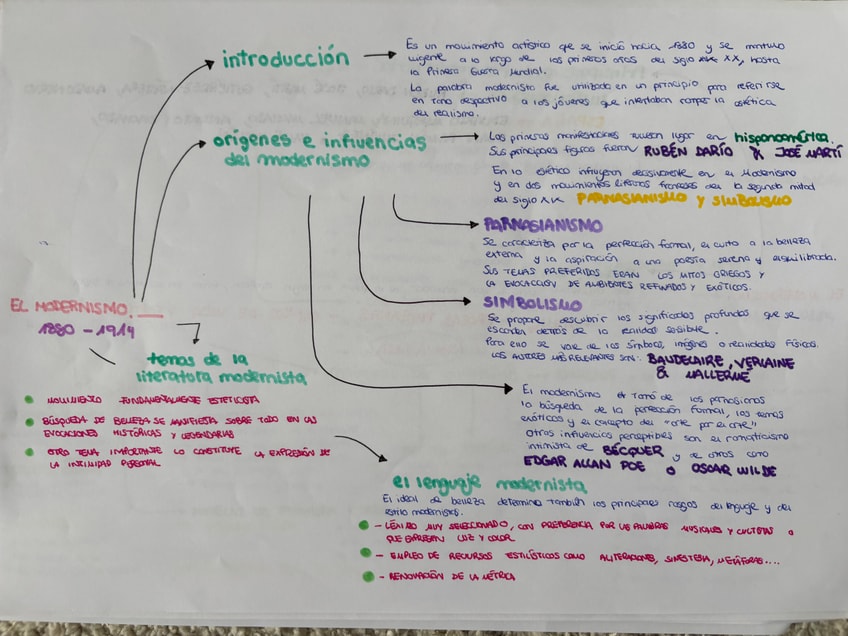 introducción
Es un movimiento artístico que se inició hacia 1880 y se mantuvo
vigente a lo largo de los primeros años del siglo XX, hasta
la Primera Guerra Mundial.
La palabra modernista fue utilizada en un principio para referirse
en tono despectivo a los jóvenes que intentaban romper la estética
del realismo.
orígenes e influencias
del modernismo
Las primeras manifestaciones tuvieron lugar en hispanoamérica.
Sus principales figuras fueron RUBÉN DARÍO & JOSÉ MARTÍ
En lo estético influyeron decisivamente en el Modernismo
y en dos movimientos literarios franceses de la segunda mitad
del siglo XIX PARNASIANISMO y SIMBOLISMO
PARNASIANISMO
Se caracteriza por la perfección formal, el culto a la belleza
externa y la aspiración a una poesía serena y equilibrada.
SUS TEMAS PREFERIDOS ERAN LOS MITOS GRIEGOS Y
LA EVOCACCION DE AMBIENTES REFINADOS Y EXÓTICOS.
SIMBOLISMO
Se propone descubrir los significados profundos que se
esconden detrás de la realidad sensible.
Para ello se vale de los símbolos, imágenes o realidades físicas.
LOS AUTORES MÁS RELEVANTES SON: BAUDELAIRE, VERLAINE
& MALLERMÉ
EL MODERNISMO.
1880 - 1914
temas de la
literatura modernista
MOVIMIENTO FUNDAMENTALMENTE ESTETICISTA
BÚSQUEDA DE BELLEZA SE MANIFIESTA SOBRE TODO EN LAS
EVOCACIONES HISTÓRICAS Y LEGENDARIAS
OTRO TEMA IMPORTANTE LO CONSTITUYE LA EXPRESIÓN DE
LA INTIMIDAD PERSONAL
El modernismo el tomó de los parnasianos
la búsqueda de la perfección formal, los temas
exóticos y el concepto del "arte por el arte"
Otras influencias perceptibles son el romanticismo
intimista de BÉCQUER y de otros como
EDGAR ALLAN POE o OSCAR WILDE
el lenguaje modernista
El ideal de belleza determina también los principales rasgos del lenguaje y del
estilo modernistas.
- LÉXICO MUY SELECCIONADO, CON PREFERENCIA POR LAS PALABRAS MUSICALES Y CULTISTAS o
QUE EXPRESEN LUZ Y COLOR
- EMPLEO DE RECURSOS ESTILÍSTICOS COMO ALITERACIONES, SINESTESIA, METÁFORAS....
- RENOVACIÓN DE LA MÉTRICA